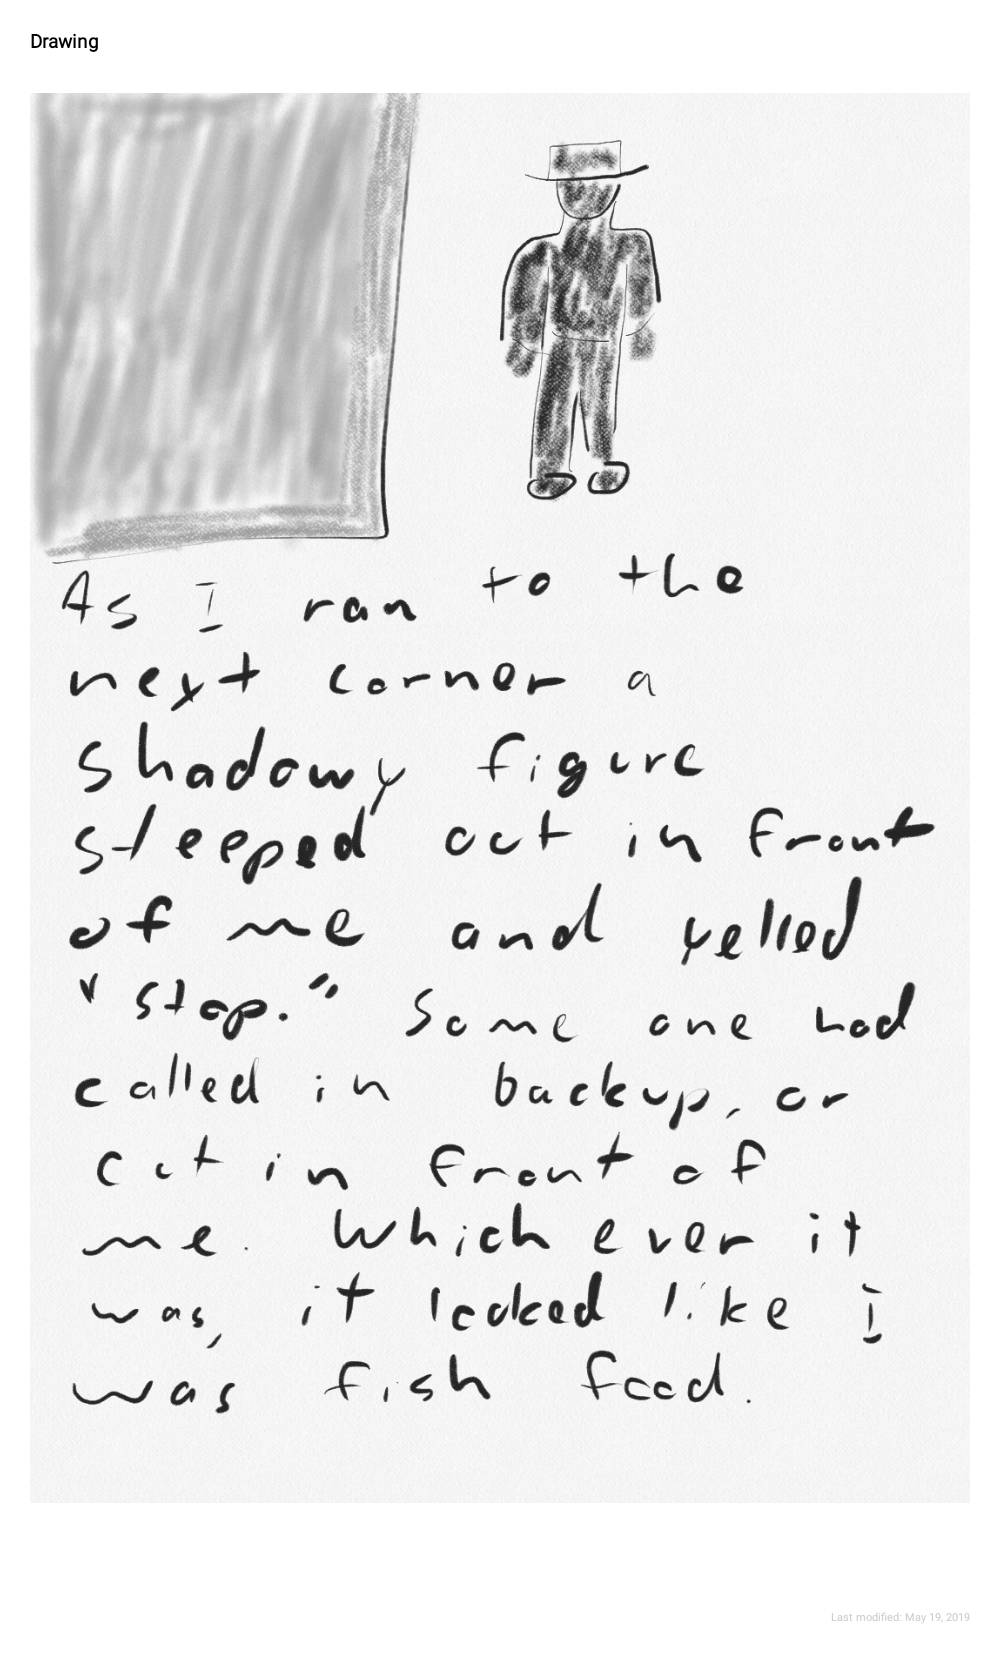 Drawing
As I ran to the
next corner a
shadowy figure
steeped out in front
of me and yelled
"stop." Some one had
called in backup, or
cut in front of
me. Which ever it
was, it looked like I
was fish food.
Last modified: May 19, 2019